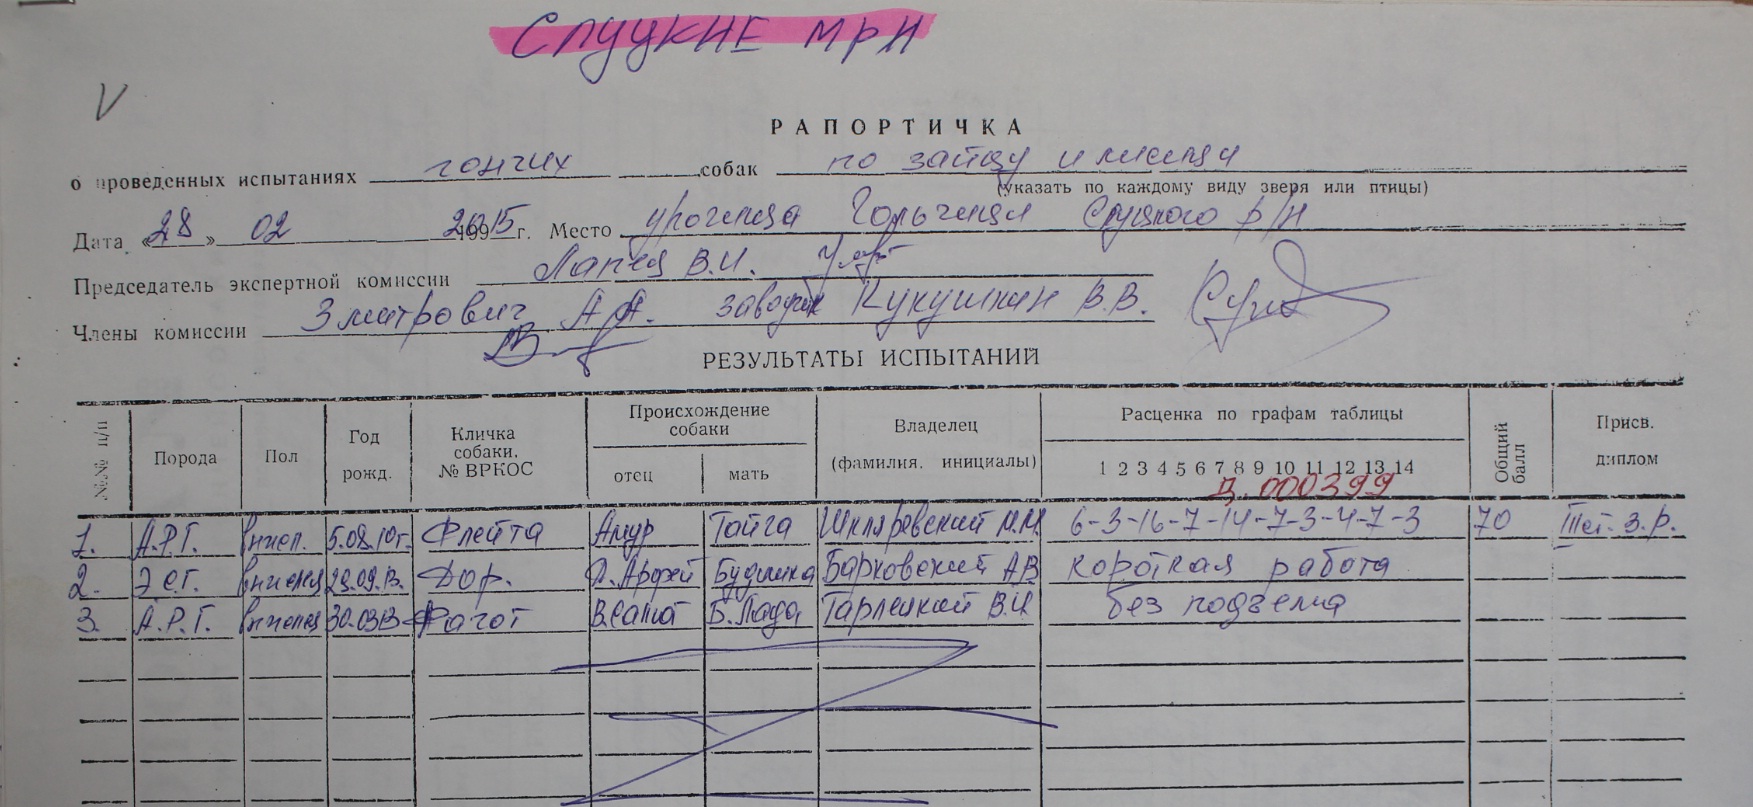 Слуцкие МРИ
V
РАПОРТИЧКА
о проведенных испытаниях гончих собак по зайцу и лисица
(указать по каждому виду зверя или птицы)
Дата «28» 02 2015 г. Место урочища Гольчицы Слуцкого р/н
Председатель экспертной комиссии Лапец В.И.
Члены комиссии Змитрович А.А. Кукушкин В.В.
РЕЗУЛЬТАТЫ ИСПЫТАНИЙ
№№ п/п Порода Пол Год рожд. Кличка собаки, № ВРКОС Происхождение собаки отец мать Владелец (фамилия, инициалы) Расценка по графам таблицы 1 2 3 4 5 6 7 8 9 10 11 12 13 14 Общий балл Присв. диплом
Д. 000399
1. А.Р.Г. 5.08.10г. Флейта Амур Тайга Шкляревский М.М. 6-3-16-7-14-7-3-4-7-3 70 3.р.
2. Э.С.Г. 23.09.13. Дор. Барковский А.В короткая работа
3. А.Р.Г. 30.03.13 Фагот Б. Лада Тарлецкий В.И без подъема